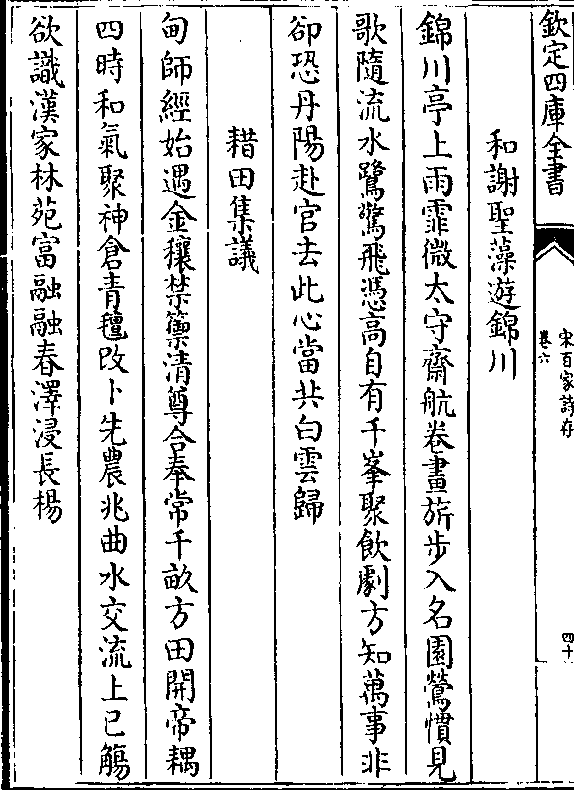 欽定四庫全書
宋百家詩存
卷六
四十
和謝聖藻遊錦川
錦川亭上雨霏微太守齋航卷畫旂步入名園鶯慣見
歌隨流水鷺驚飛憑高自有千峯聚飲劇方知萬事非
卻恐丹陽赴官去此心當共白雲歸
耤田集議
甸師經始遇金穰禁籞清尊合奉常千畝方田開帝耦
四時和氣聚神倉青壇改卜先農兆曲水交流上巳觴
欲識漢家林苑富融融春澤浸長楊